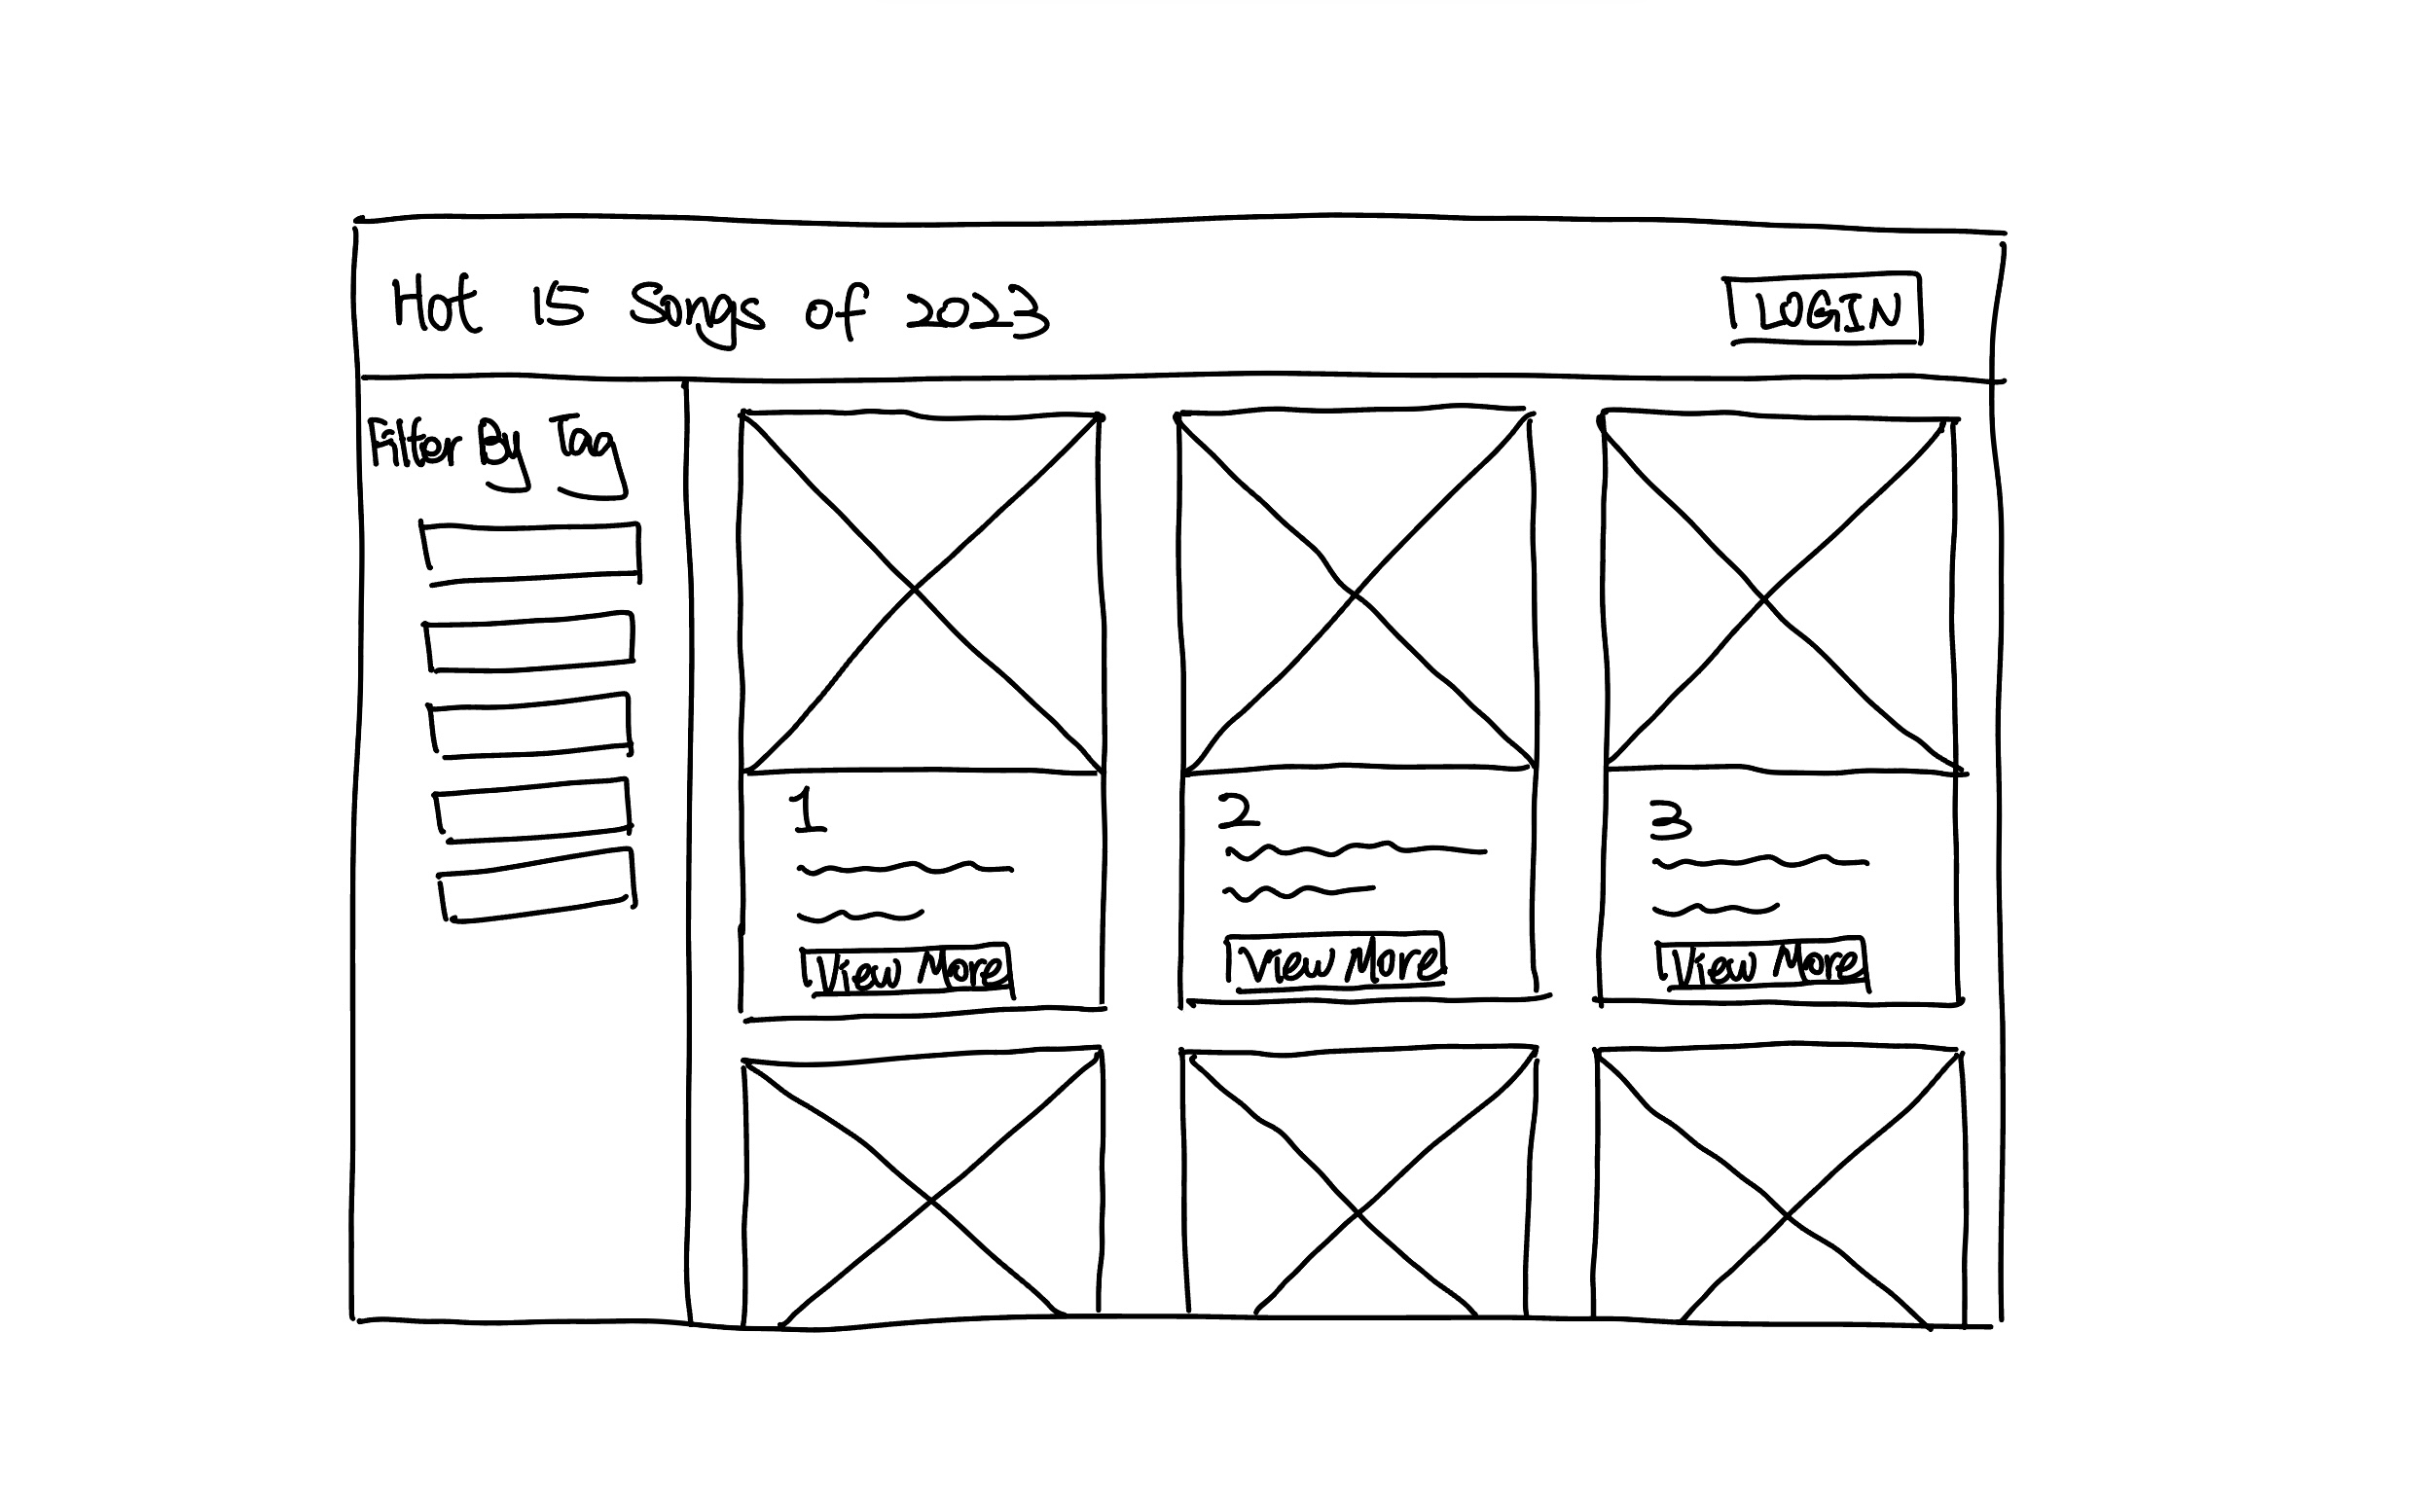 Hot 15 Songs of 2023
LOGIN
Filter By Tag
1
View More
2
View More
3
View More